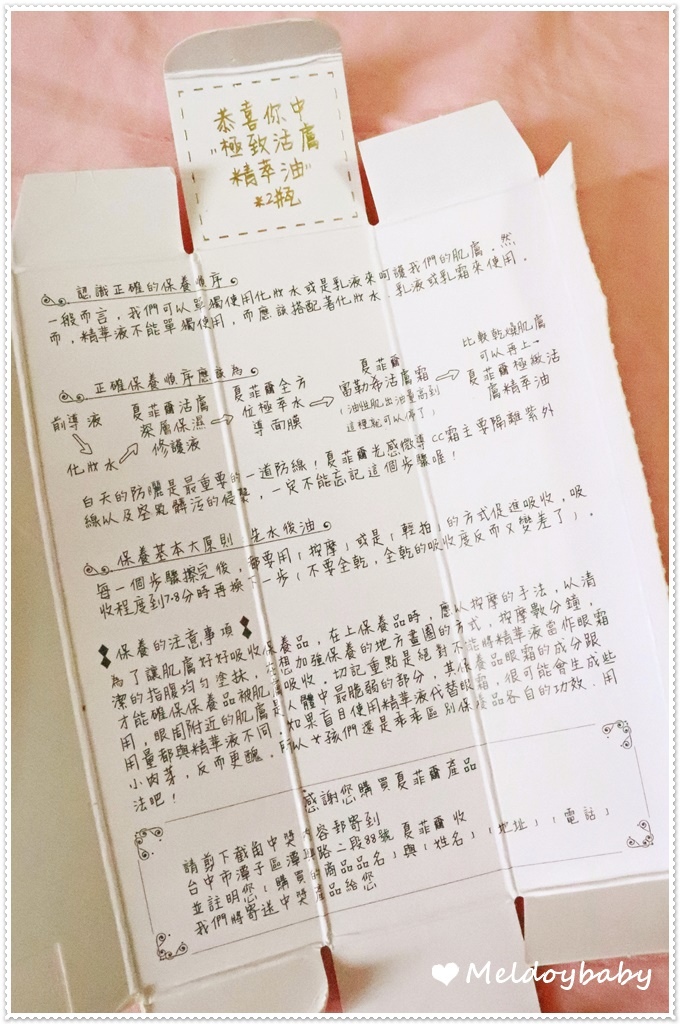 恭喜你中
"極致活膚
精萃油"
*2瓶
認識正確的保養順序
一般而言，我們可以單獨使用化妝水或是乳液來呵護我們的肌膚，然
而，精華液不能單獨使用，而應該搭配著化妝水、乳液或乳霜來使用。
正確保養順序應該為
前導液
化妝水
夏菲爾活膚
深層保濕
修護液
夏菲爾全方
位極萃水
導面膜
夏菲爾
富勒希活膚霜
(油性肌出油量高到
這裡就可以停了)
比較乾燥肌膚
可以再上
夏菲爾極緻活
膚精萃油
白天的防曬是最重要的一道防線！夏菲爾光感微導CC霜主要隔離紫外
線以及空氣髒污的侵襲，一定不能忘記這個步驟喔！
保養基本大原則：先水後油
每一個步驟擦完後，都要用「按摩」或是「輕拍」的方式促進吸收，吸
收程度到7.8分時再換下一步(不要全乾，全乾的吸收度反而又變差了)。
保養的注意事項
為了讓肌膚好好吸收保養品，在上保養品時，應以按摩的手法，以清
潔的指腹均勻塗抹，在想加強保養的地方畫圈的方式，按摩數分鐘，
才能確保保養品被肌膚吸收，切記重點是絕對不能將精華液當作眼霜
用，眼周附近的肌膚是人體中最脆弱的部分，其保養品眼霜的成分跟
用量都與精華液不同，如果盲目使用精華液代替眼霜，很可能會生成些
小肉芽，反而更醜，所以女孩們還是乖乖區別保養品各自的功效、用
法吧！
感謝您購買夏菲爾產品
請剪下截角中獎內容郵寄到
台中市潭子區潭興路二段88號 夏菲爾 收
並註明您「購買的商品品名」與「姓名」「地址」「電話」
我們將寄送中獎產品給您
Meldoybaby